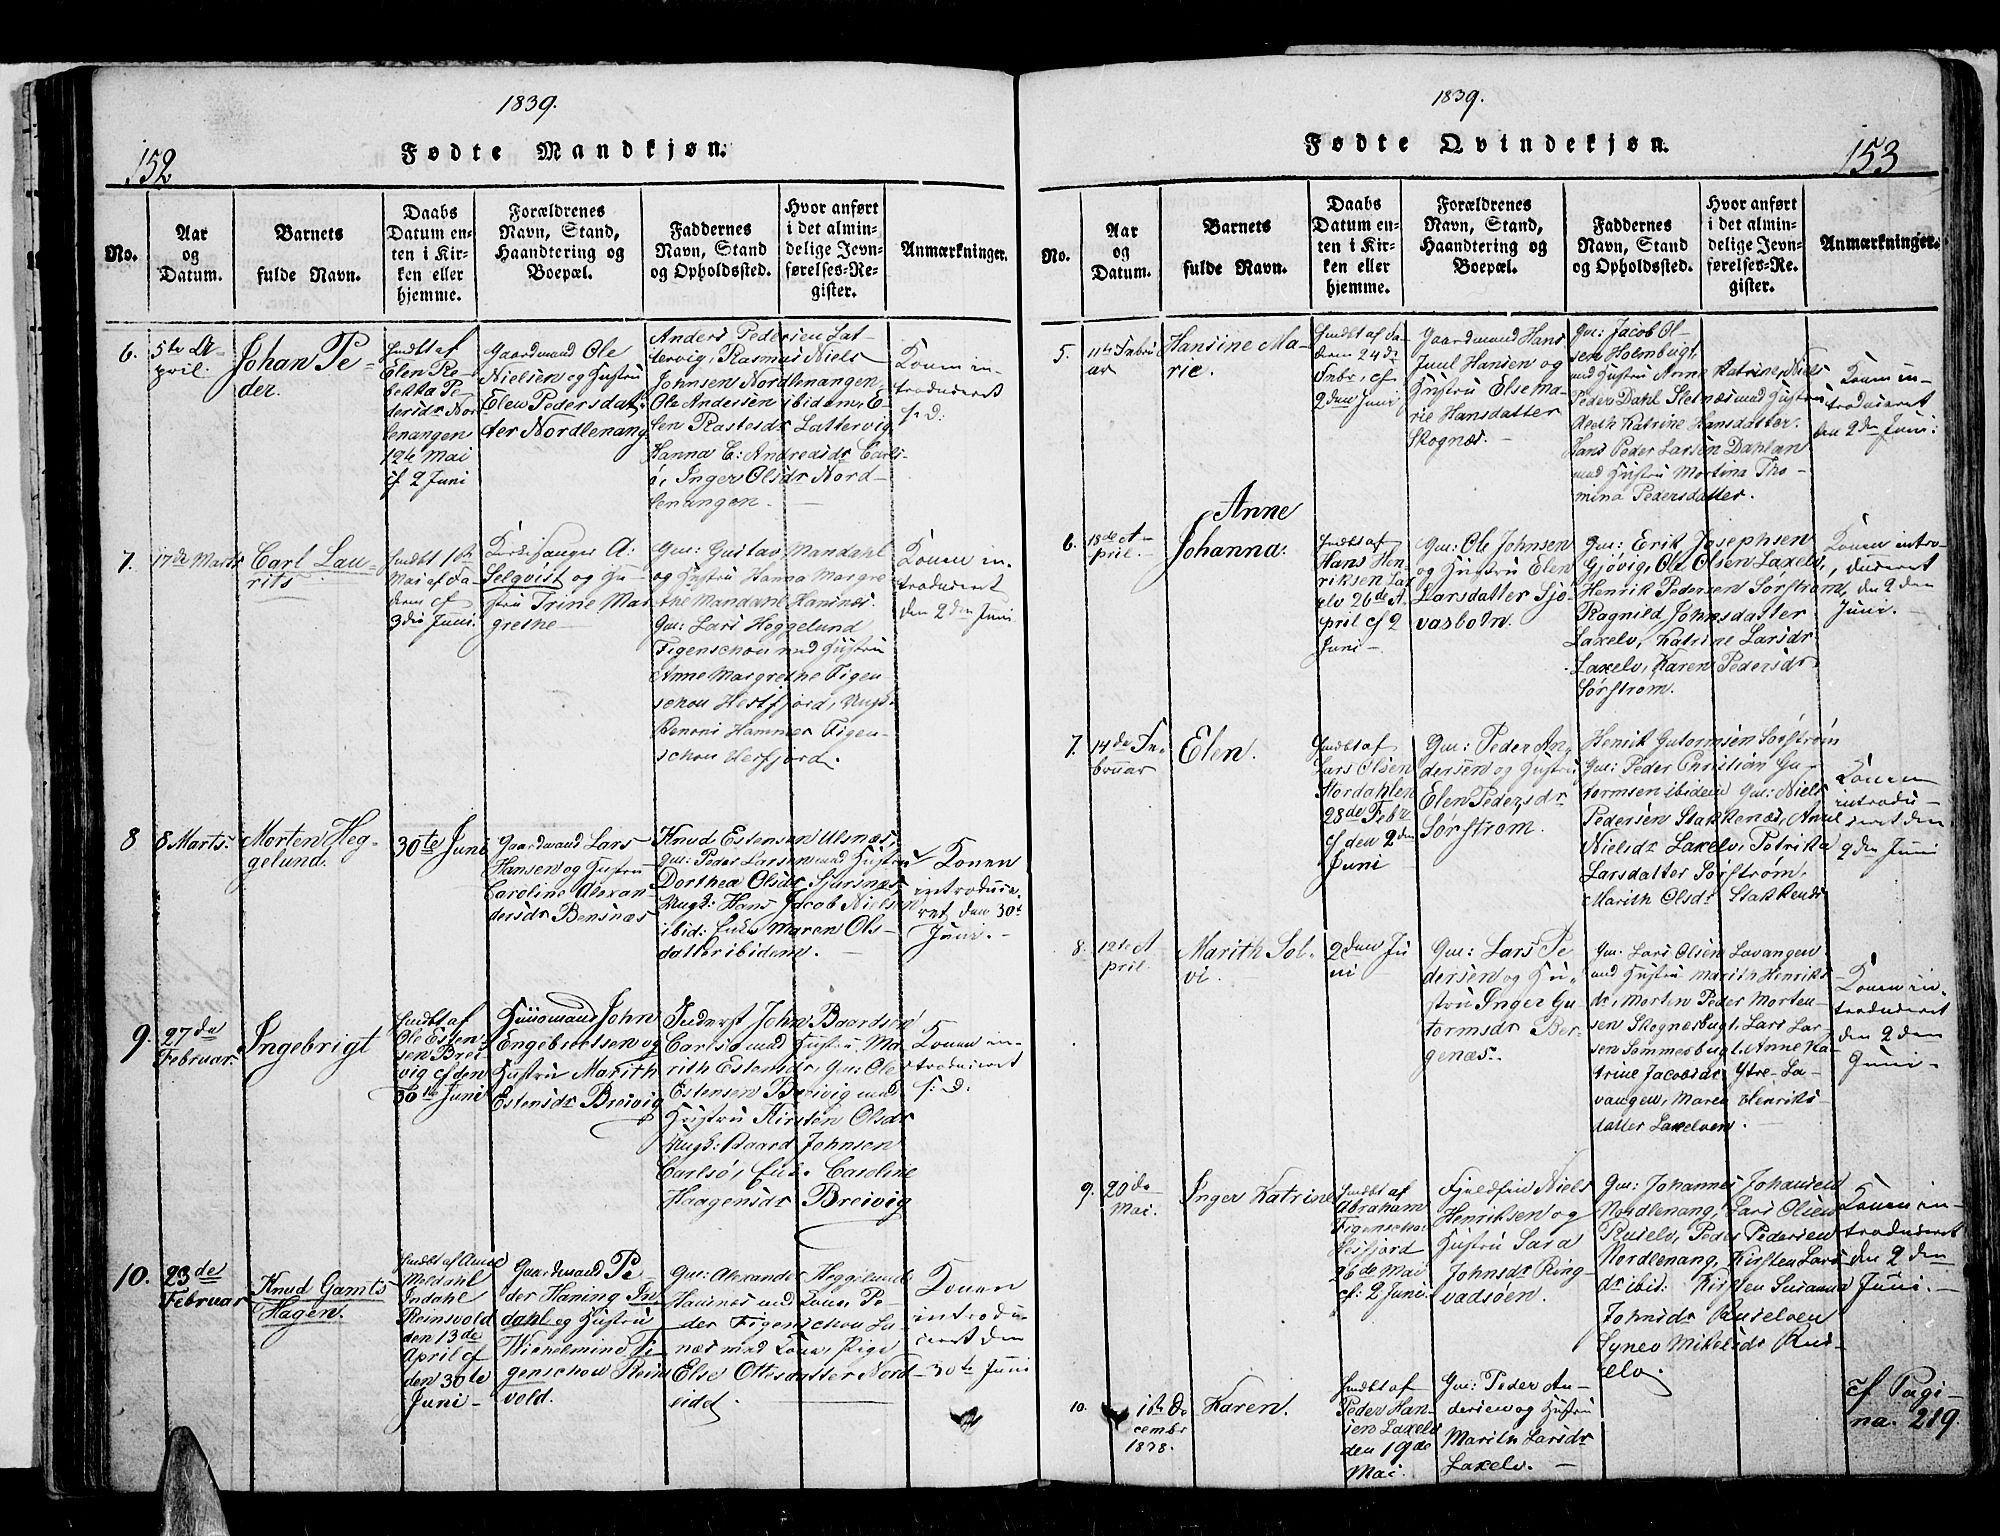 1839.
152
Fødte Mandkjøn.
No.
Aar
og
Datum.
Barnets
fulde Navn.
Daabs
Datum en-
ten i Kir-
ken eller
hjemme.
Forældrenes
Navn, Stand,
Haandtering og
Boepæl.
Faddernes
Navn, Stand
og Opholdssted.
Hvor anført
i det almin-
delige Jevn-
førelses-Re-
gister.
Anmærkninger.
6.
5te A-
pril.
Johan Pe-
der.
hmdbt af
Elen Re-
bekka Pe-
dersdr Nor
lenangen
12te Mai
cf 2 Juni
Gaardmand Ole
Nielsen og Hustru
Elen Pedersdat-
ter Nordlenang
Anders Pedersen Lat-
tervig, Rasmus Niels
Johnsen Nordlenangen,
Ole Andersen ibidem, E-
len Rastesdr Lattervig
Hanna E: Andreasdr Carls-
ö, Inger Olsdr Nord-
lenangen.
Konen in-
troduceret
s: d:
7.
17de Marts
Carl Lau-
rits.
hmdbt 1ste
Mai af Fa-
deren cf
3die Juni.
Kirkesanger A:
Selqvist og Hu-
stru Trine Mar
grethe
Gm: Gustav Mandahl
og Hustru Hanna Margre
the Mandahl Hansnæs.
Gm: Lars Heggelund
Figenschou med Hustru
Anne Margrethe Figen
schou Hesfjord, Ungk:
Benoni Hammer Figen-
schou Hesfjord.
Konen in-
troduceret
den 2den Juni
8
8 Marts.
Morten Heg-
gelund.
30te Juni
Gaardmand Lars
Hansen og Hustru
Caroline Alexan
dersdr Bensnæs
Knud Estensen Ulsnæs,
Gm: Peder Larsen med Hustru
Dorthea Olsdr Sjursnæs
Ungk: Hans Jacob Nielsen
ibid: Maren Ols-
datter ibidem.
Konen
introduce-
ret den 30te
Juni.
9.
27de
Februar.
Ingebrigt
hmdbt af
Ole Esten-
sen Brei
vig cf den
30te Juni
Huusmand John
Engebretsen og
Hustru Marith
Estensdr Breivig
Inderst John Baardsen
Carlsö med Hustru Ma-
rith Estensdr, Gm: Ole
Estensen Breivig med
Hustru Kirsten Olsdr
Ungk: Baard Johnsen
Carlsö, Caroline
Haagensdr Breivig
Konen in-
troduceret
s: D:
10.
23de
Februar
Knud Gamts
Hagen.
hmdbt af
Moldahl
Indahl
Reinsvold
den 13de
April cf
den 30te
Juni
Gaardmand Pe
der Haning In
dahl og Hustru
Wichelmine Fi
genschou Reins
vold.
Gm: Alexander Heggelund
Hansnæs med Kone Pe-
der Figenschou
næs med Kone, Pige
Else Ottesdatter Nord
eidet.
Konen
introdu-
ceret den
30te Juni
1839.
153
Fødte Qvindekjøn.
No.
Aar
og
Datum.
Barnets
fulde Navn.
Daabs
Datum en-
ten i Kir-
ken eller
hjemme.
Forældrenes
Navn, Stand,
Haandtering og
Boepæl.
Faddernes
Navn, Stand
og Opholdssted.
Hvor anført
i det almin-
delige Jevn-
førelses-Re-
gister.
Anmærkninger.
5.
11te Febru
ar
Hansine Ma-
rie.
hmdbt af Fa-
deren 24de
Febr, cf
2den Juni
Gaardmand Hans
Juul Hansen og
Hustru Else Ma-
rie Hansdatter
Skognæs.
Gm: Jacob Ol-
sen Holmbugt,
med Hustru Anne Katrine, Niels
Peder Dahl Sletnæs med Hustru
Katrine Hansdatter.
Hans Peder Larsen Dahlan
med Hustru Martina Tho-
mina Pedersdatter.
Konen in-
troduceret
den 2den Juni.
6.
18de A-
pril.
Anne
Johanna.
hmdbt af
Hans Hen-
riksen Lax
elv 26de A
pril cf 2
Juni
Gm: Ole Johnsen
og Hustru Elen
Larsdatter Sjö-
vasbotn.
Gm: Erik Josephsen
Gjövig, Ole Olsen Laxelv,
Henrik Pedersen Sörstrom,
Ragnild Johnsdatter
Laxelv, Katrine Larsdr
Laxelv, Karen Pedersdr
Sörstrom.
Konen intro-
duceret
den 2den
Juni.
7.
14de Fe-
bruar
Elen.
hmdbt af
Lars Olsen
Nordahlen
28de Febr
cf den 2den
Juni
Gm: Peder An-
dersen og Hustru
Elen Pedersdr
Sörstrom.
Henrik Gutormsen Sörström
Gm: Peder Christian Gu-
tormsen ibidem Gm: Niels
Pedersen Stakkenæs,
Nielsdr Laxelv, Petrika
Larsdatter Sörström.
Marith Olsdr
Konen
introdu-
ceret den
2den Juni
8.
12te A
pril.
Marith Sol-
vi.
2den Ju
ni
Gm: Lars Pe-
dersen og Hu-
stru Inger Gu-
tormsdr Ber-
genæs.
Gm: Lars Olsen Lavangen
med Hustru Marith Henriks
dr, Morten Peder Morten-
sen Skognæsbugt, Lars Lar-
sen Sommerbugt, Anne Ka-
trine Jacobsdr Ytre-La-
vangen, Maren Henriks-
datter Laxelven.
Konen in-
troduceret
den 2den
Juni
9.
20de
Mai.
Inger Katrine
hmdbt af
Abraham
Figenschou
Hesfjord
26de Mai
cf: 2 Juni.
Fjeldfin Niels
Henriksen og
Hustru Sara
Johnsdr Ring-
vadsöen.
Gm: Johannes Johansen
Nordlenang, Lars Olsen
Ruselv, Peder Pedersen
Nordlenang, Kirsten Lars-
dr ibid: Kirsten Susanna
Johnsdr Ruselven
Synev Mikelsdr Rus-
elv.
Konen in-
troduceret
den 2den
Juni.
10.
1ste De
cembr
1838.
Karen.
hmdbt af
Peder Han-
sen Laxelv
den 19de
Mai.
Gm: Peder An-
dersen og Hustru
Marith Larsdr
Laxelv.
cf Pagi-
na. 219